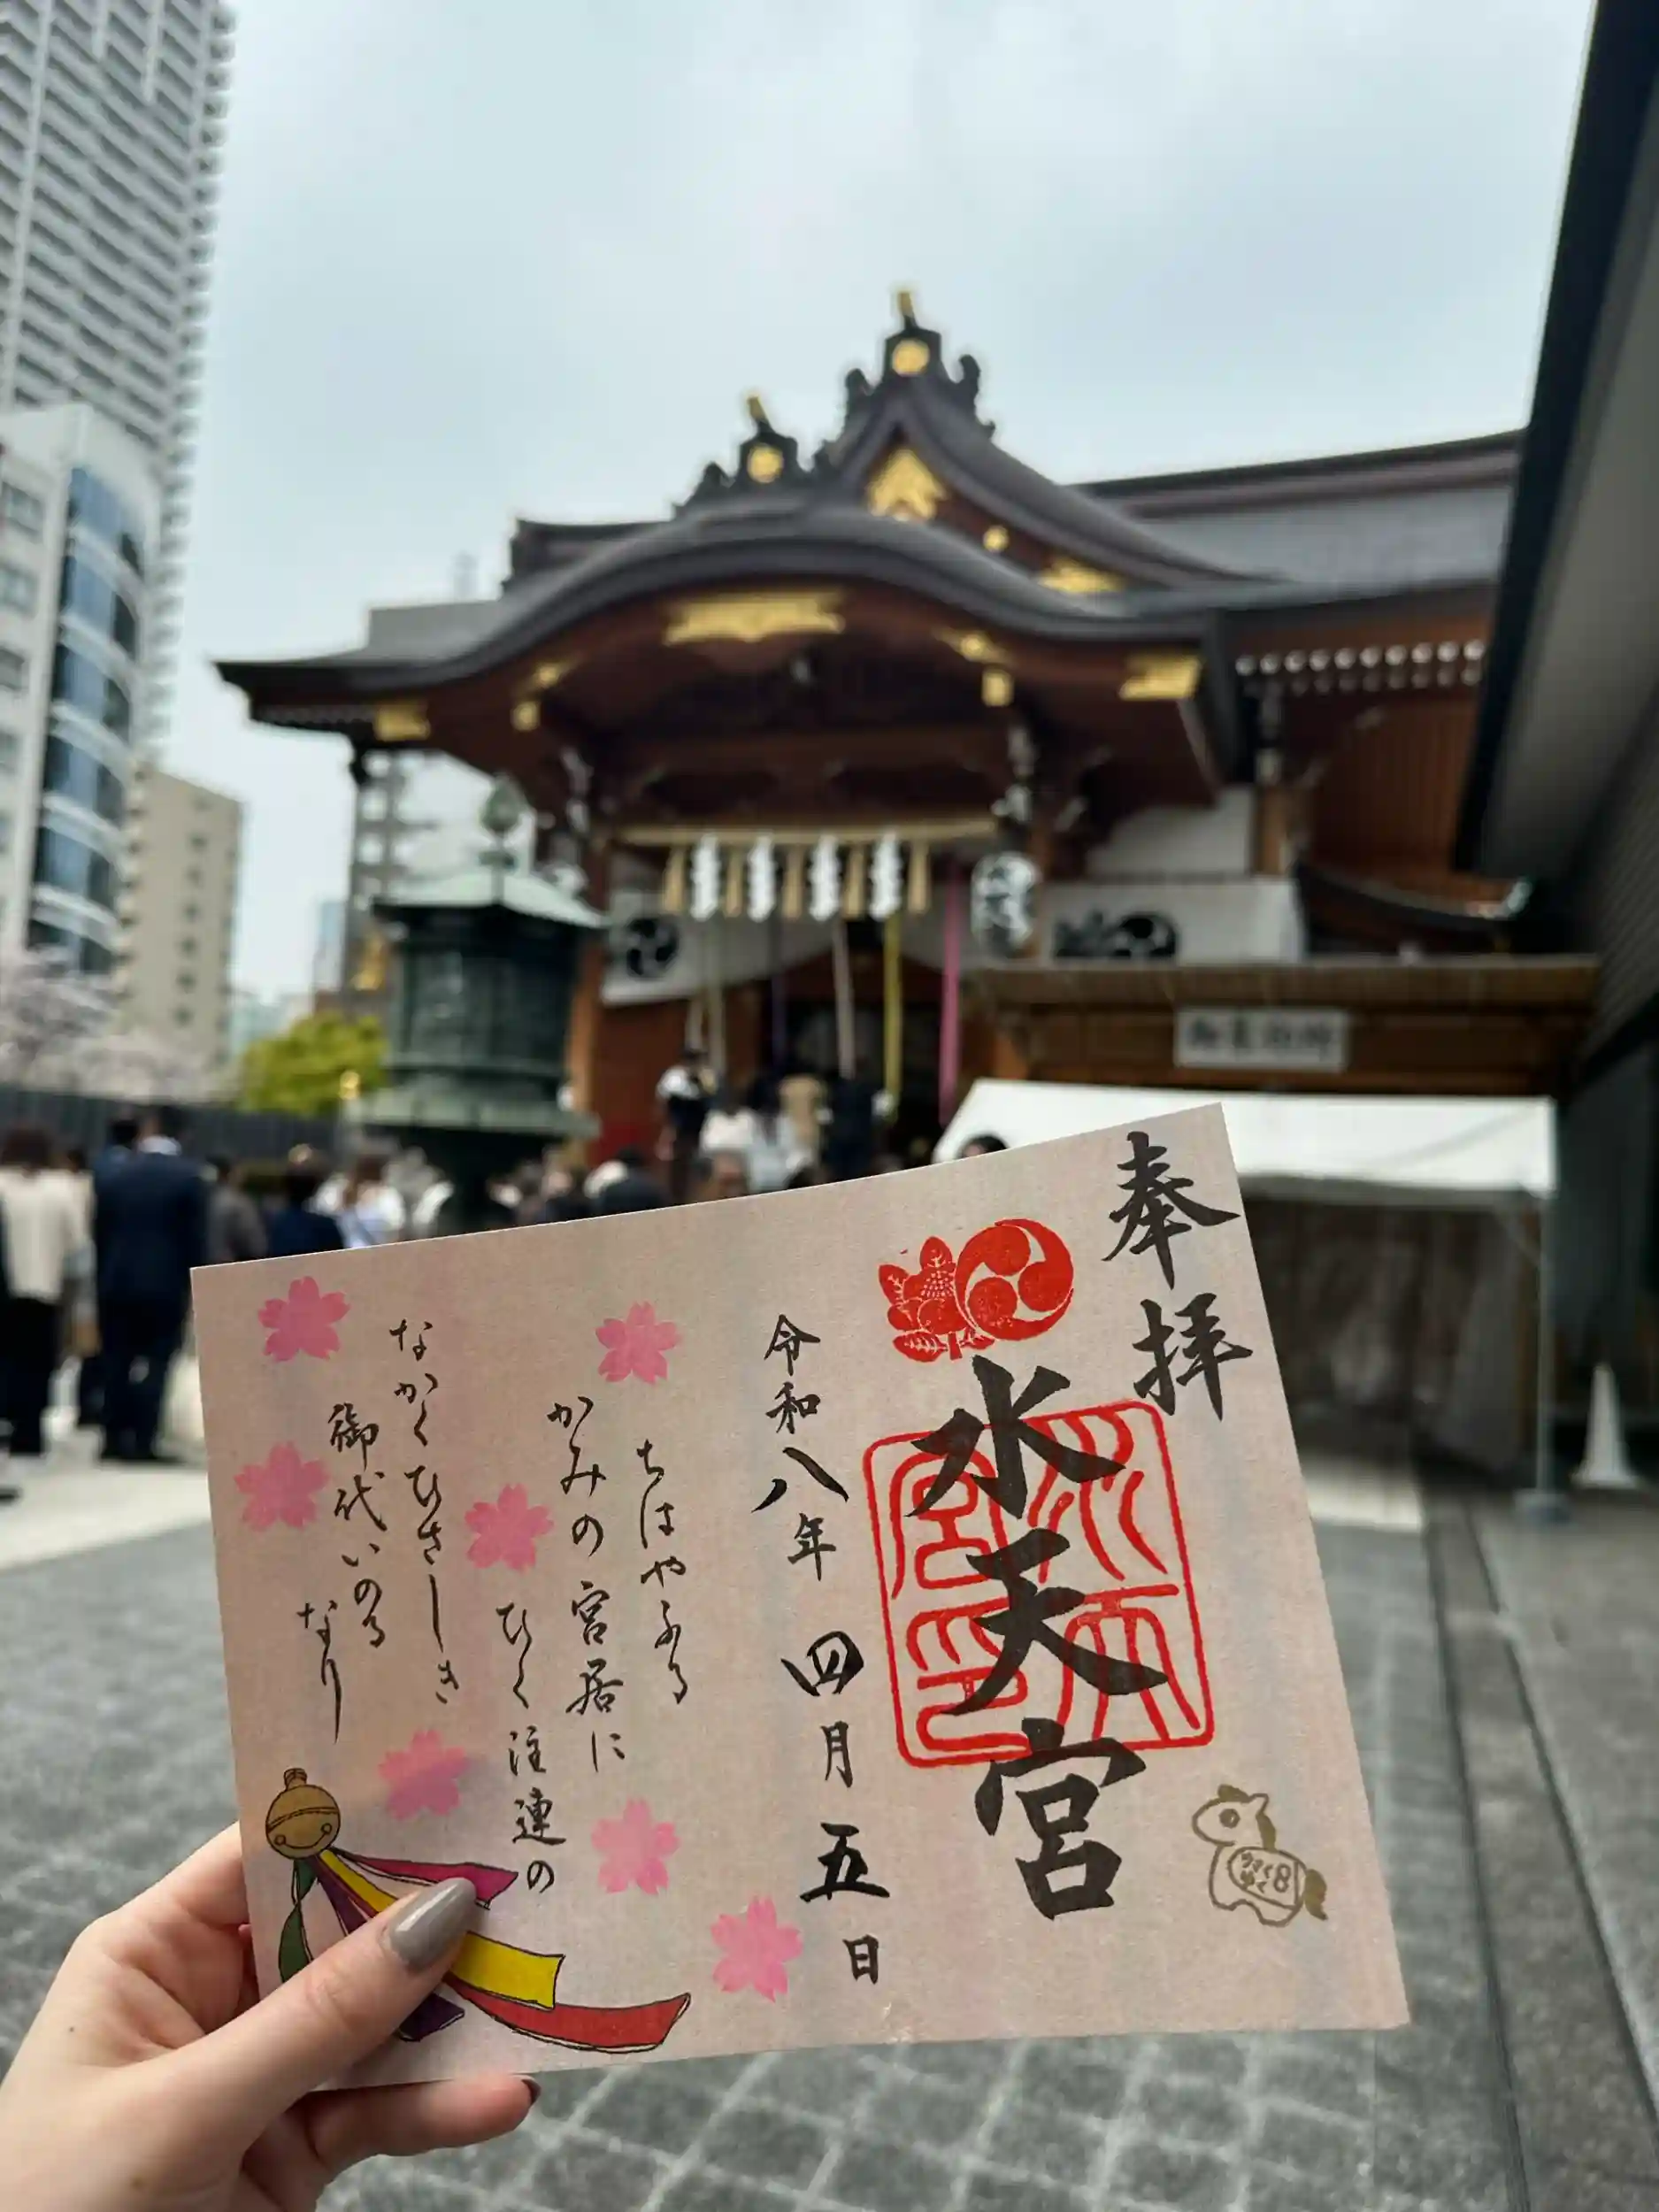 奉拝
水天宮
令和八年 四月 五日
ちはやふる
かみの宮居に
ひく注連の
なかくひさしき
御代いのる
なり
うまく
ゆく8